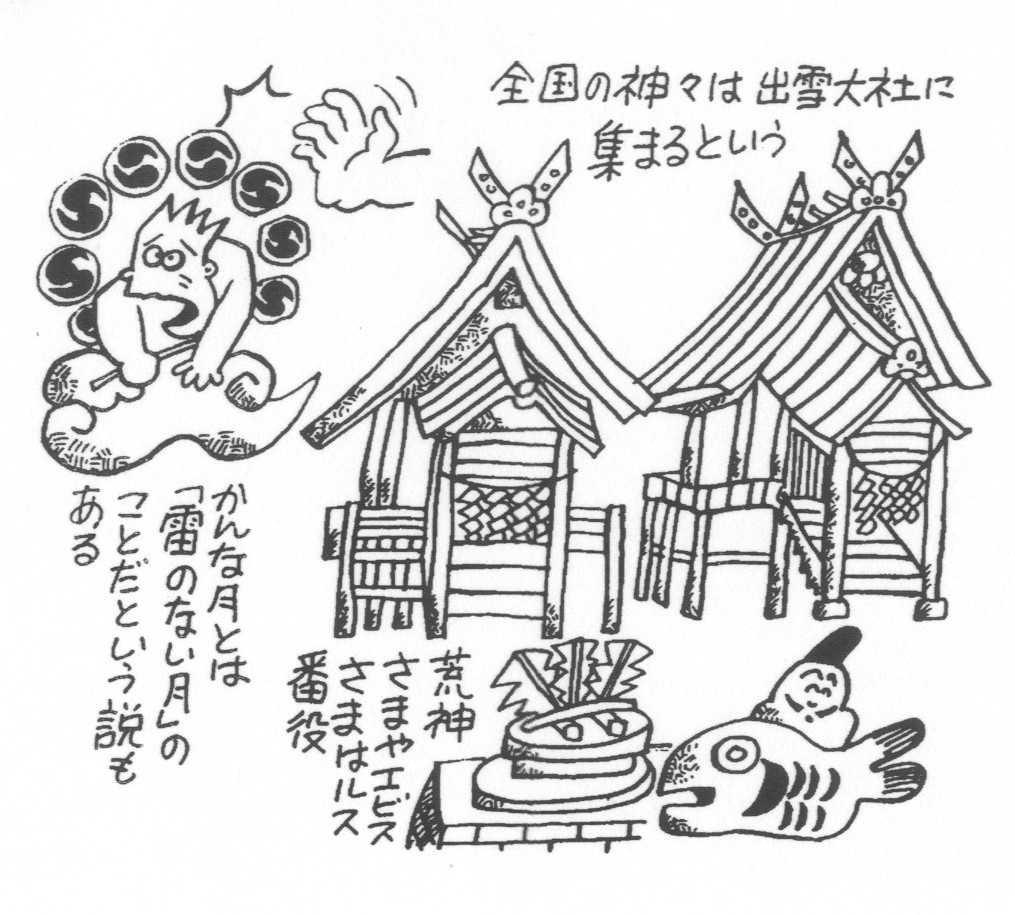 全国の神々は出雪大社に
集まるという
かんな月とは
「雷のない月」の
ことだという説も
ある
荒神
さまやエビス
さまはルス
番役